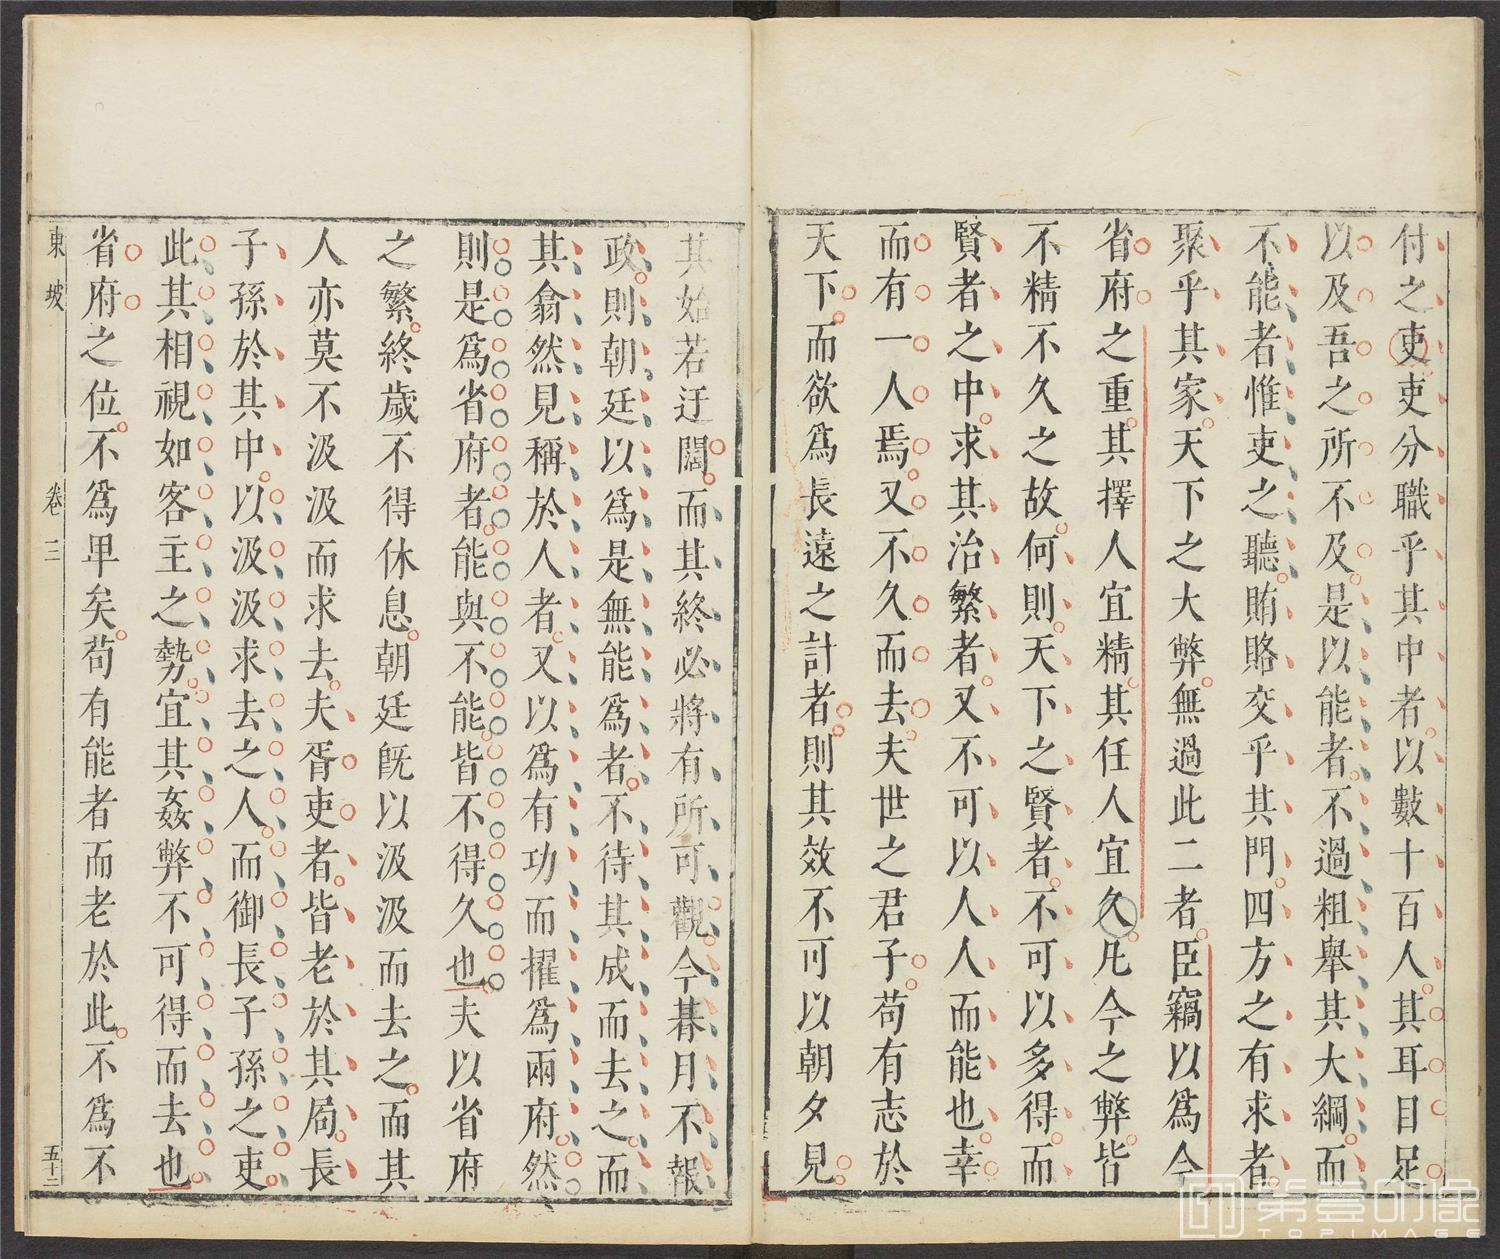 付之吏吏分職乎其中者以數十百人其耳目足
以及吾之所不及是以能者不過粗舉其大綱而
不能者惟吏之聽賄賂交乎其門四方之有求者
聚乎其家天下之大弊無過此二者臣竊以為今
省府之重其擇人宜精其任人宜久凡今之弊皆
不精不久之故何則天下之賢者不可以多得而
賢者之中求其治繁者又不可以人人而能也幸
而有一人焉又不久而去夫世之君子苟有志於
天下而欲為長遠之計者則其效不可以朝夕見
其始若迂闊而其終必將有所可觀今朞月不報
政則朝廷以為是無能為者不待其成而去之而
其翕然見稱於人者又以為有功而擢為兩府然
則是為省府者能與不能皆不得久也夫以省府
之繁終歲不得休息朝廷旣以汲汲而去之而其
人亦莫不汲汲而求去夫胥吏者皆老於其局長
子孫於其中以汲汲求去之人而御長子孫之吏
此其相視如客主之勢宜其姦弊不可得而去也
省府之位不為卑矣苟有能者而老於此不為不
東坡 卷三 五十二
第壹印像
TOPIMAGE